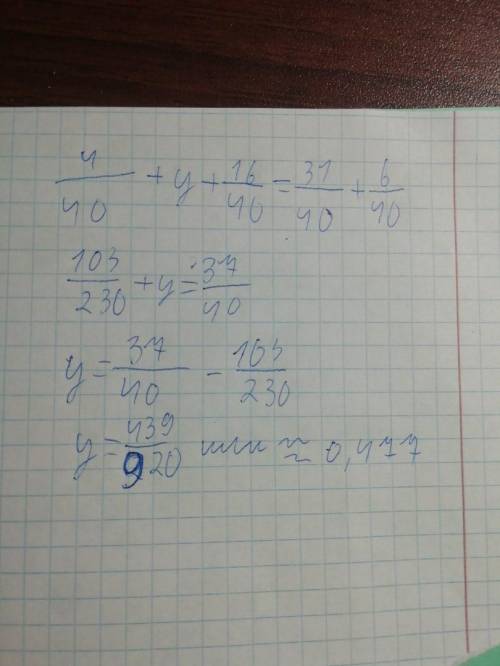 4/40 + y + 16/40 = 31/40 + 6/40
103/230 + y = 37/40
y = 37/40 - 103/230
y = 439/920 или ≈ 0,477